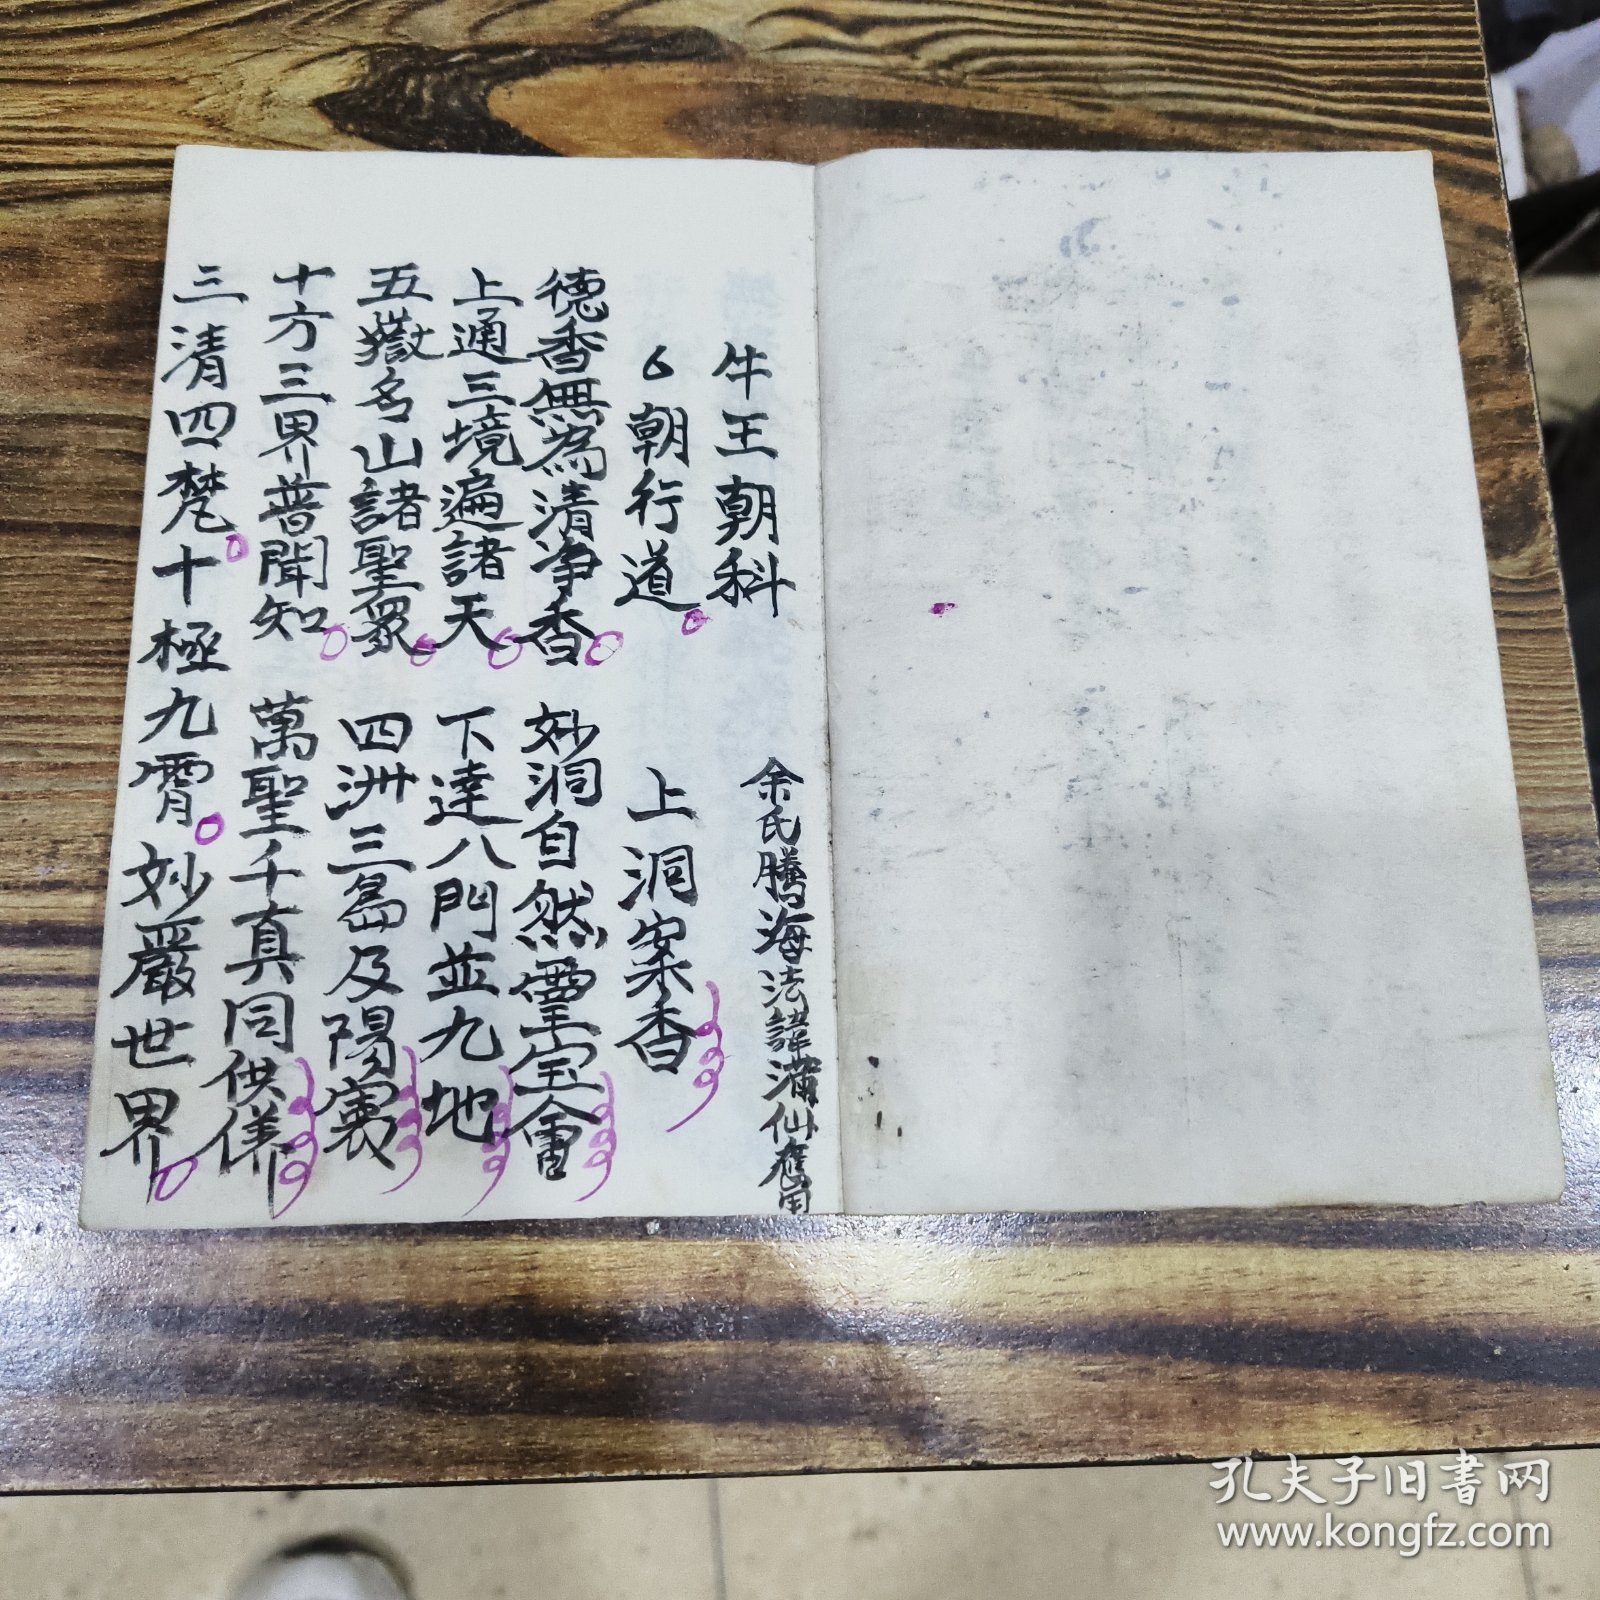 牛王朝科
余氏騰海法諱滿仙應用
朝行道 上洞案香
德香無為清净香 妙洞自然靈宝會
上通三境遍諸天 下達八門並九地
五嶽名山諸聖眾 四洲三島及陽寰
十方三界普聞知 萬聖千真同供儀
三清四梵十極九霄妙嚴世界
孔夫子旧书网
www.kongfz.com